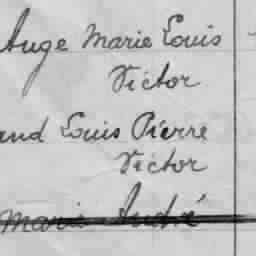 Ange Marie Louis
Victor
and Louis Pierre
Victor
Marie André